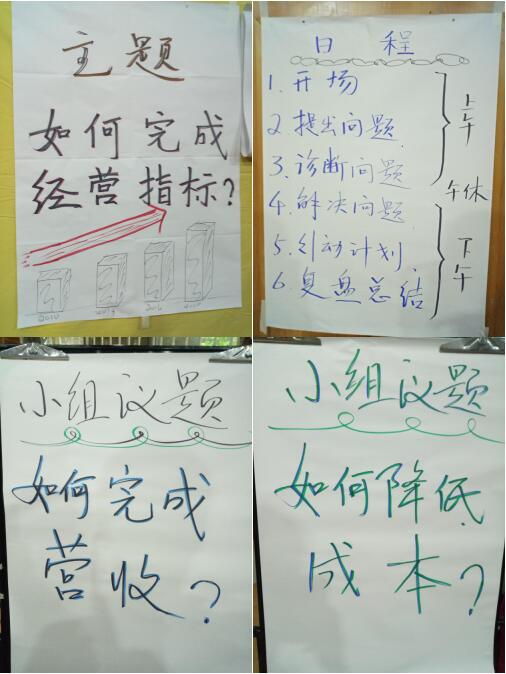 主题
如何完成
经营指标?
日程
1.开场
2.提出问题
3.诊断问题
上午
午休
4.解决问题
5.行动计划
6.复盘总结
下午
小组议题
如何完成
营收?
小组议题
如何降低
成本?